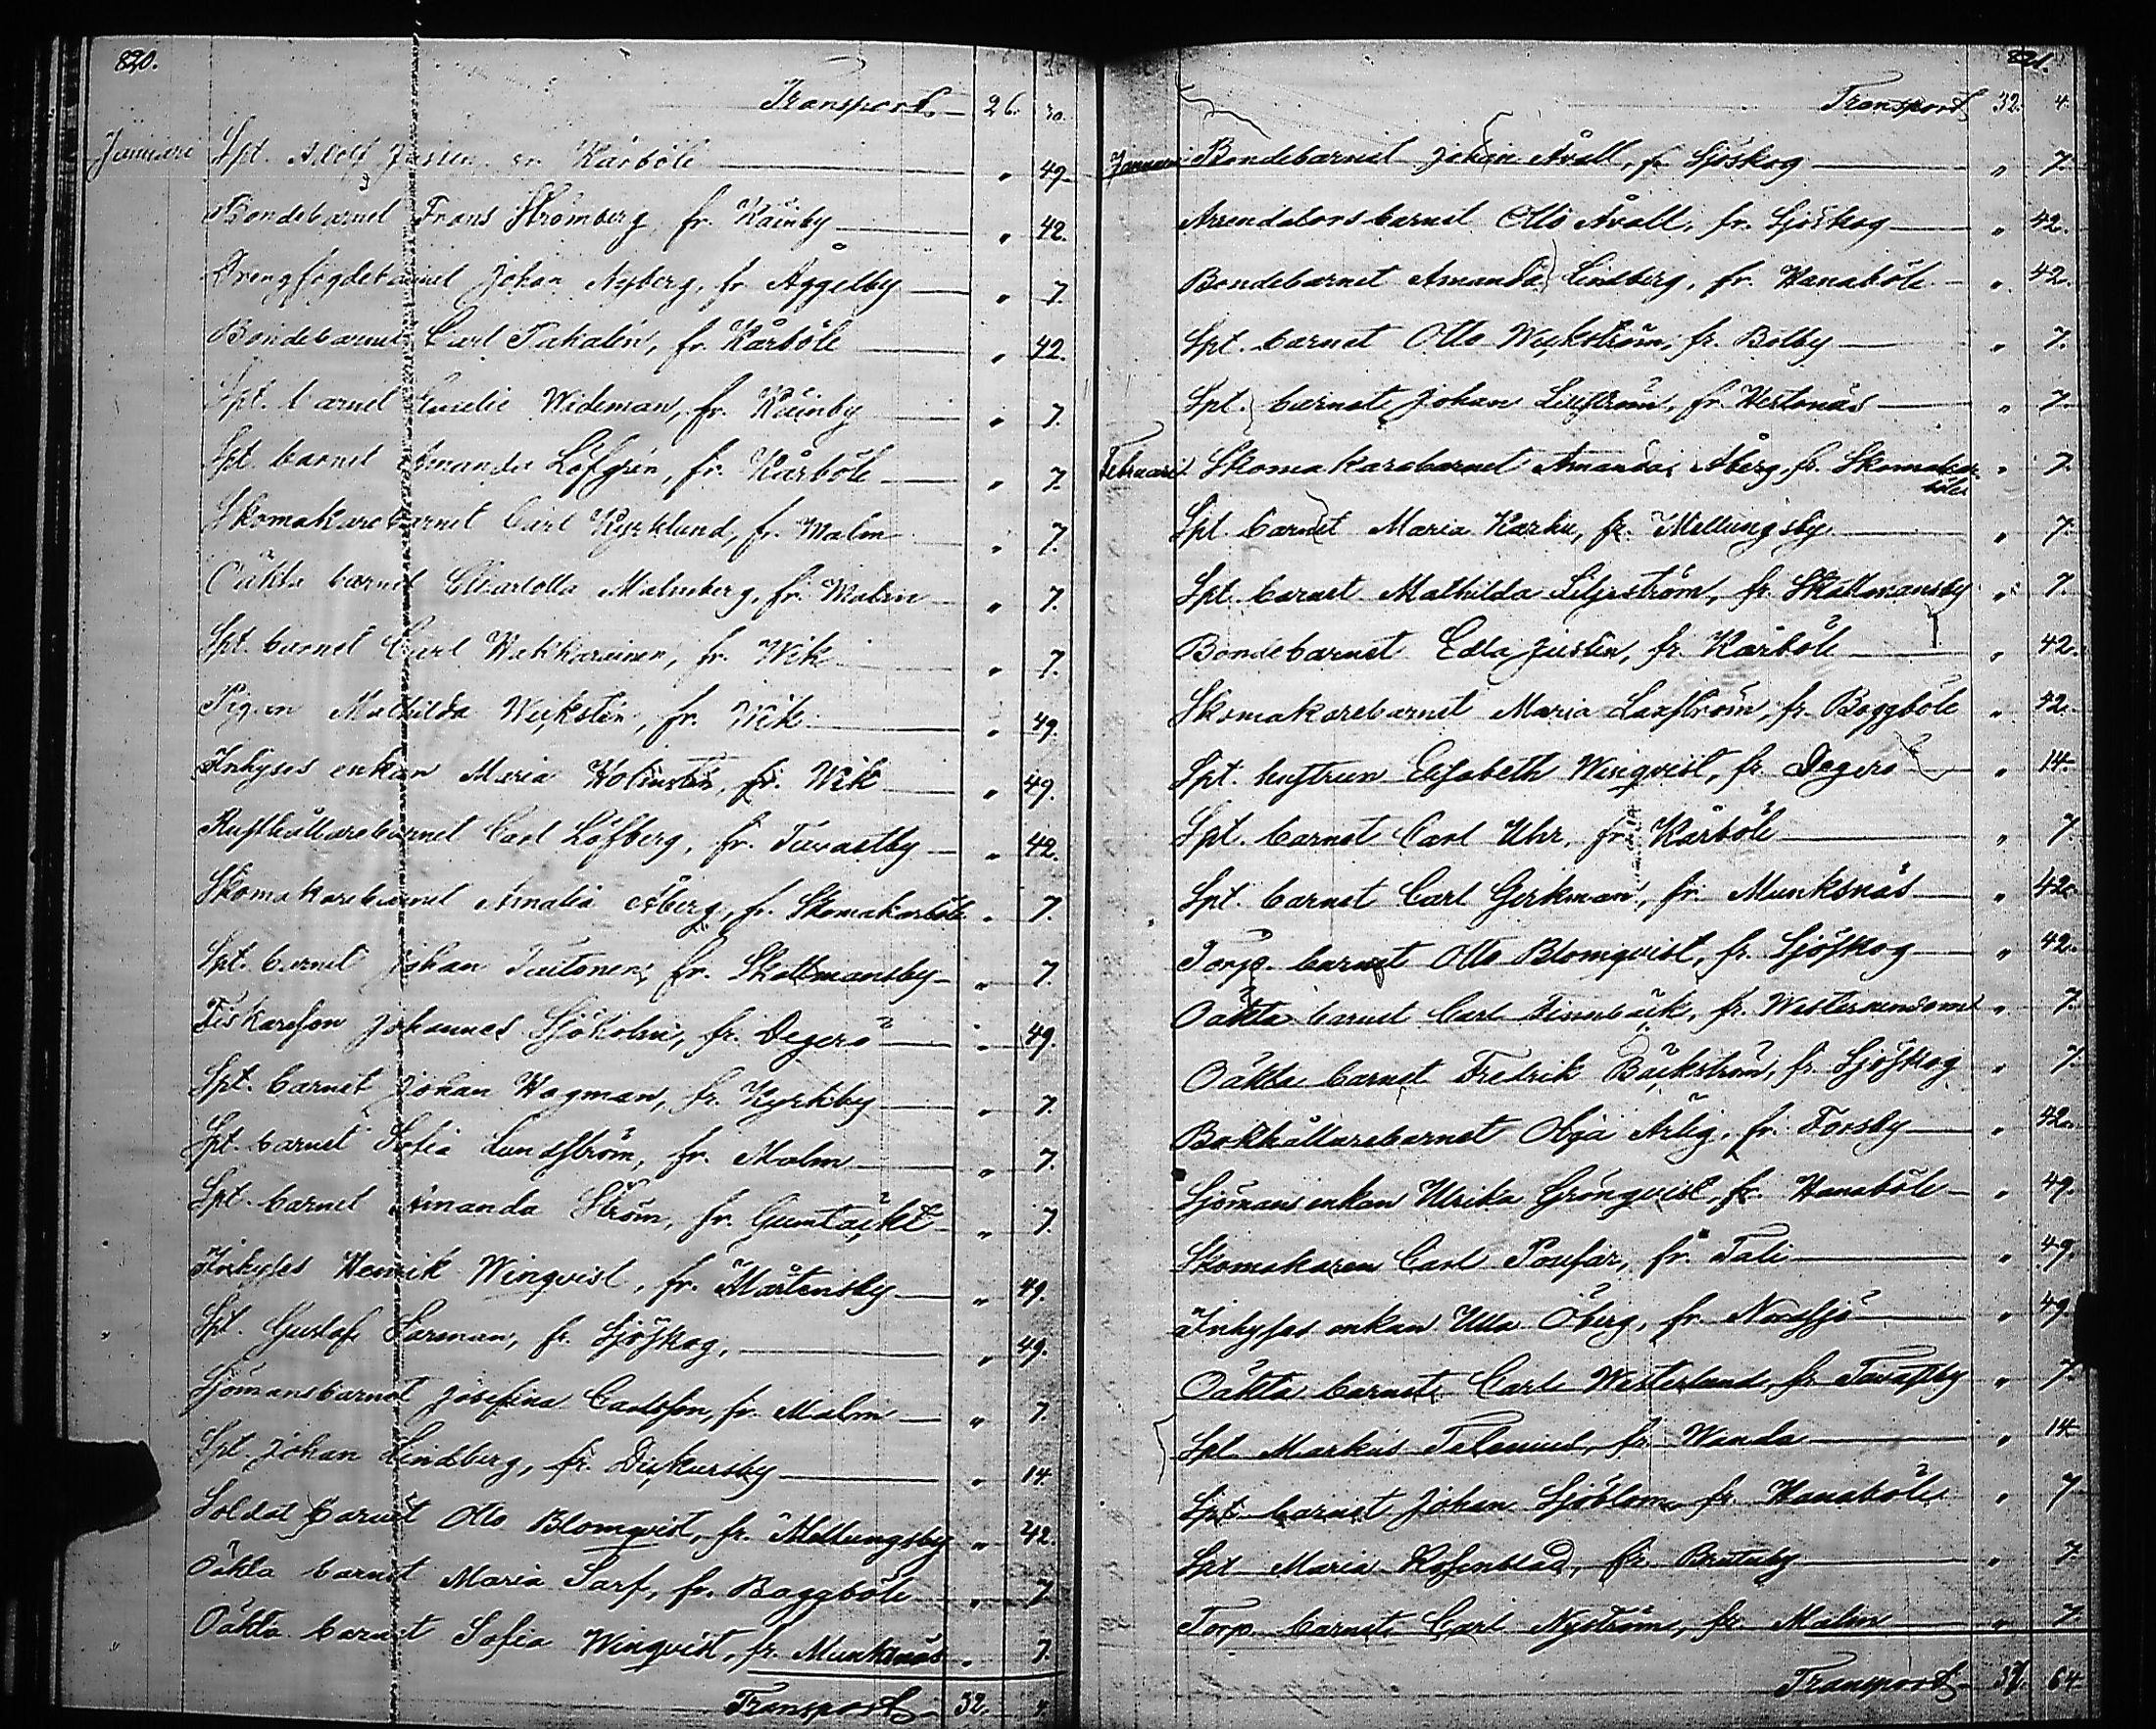 820.
Transport 26. 30.
Januari Spt. Adolf Justen, fr. Kårböle " 49.
Bondebarnet Frans Strömberg, fr. Käinby " 42.
Drengfogdebarnet Johan Nyberg, fr. Åggelby " 7.
Bondebarnet Carl Takalén, fr. Kårböle " 42.
Spt. barnet Wideman, fr. Käinby " 7.
Spt. barnet Amanda Löfgrén, fr. Kårböle " 7.
Skomakarebarnet Carl Kyrklund, fr. Malm " 7.
Oäkta barnet Charlotta Malmberg, fr. Malm " 7.
Spt. barnet Carl Hakkarainen, fr. Wik " 7.
Pigan Mathilda Weckstén, fr. Wik " 49.
Inhyses enkan Maria Holmstén, fr. Wik " 49.
Rusthållarebarnet Carl Löfberg, fr. Tavastby " 42.
Skomakarebarnet Amalia Åberg, fr. Skomakarböle " 7.
Spt. barnet Johan Tuitonen, fr. Skattmansby " 7.
Fiskareson Johannes Sjöholm, fr. Degerö " 49.
Spt. barnet Johan Hagman, fr. Kyrkby " 7.
Spt. barnet Sofia Lundström, fr. Malm " 7.
Spt. barnet Amanda Ström, fr. Gumtäckt " 7.
Inhyses Henrik Winqvist, fr. Mårtensby " 49.
Spt. Gustaf Sarman, fr. Sjöskog, " 49.
Sjömansbarnet Josefina Carlsson, fr. Malm " 7.
Spt. Johan Lindberg, fr. Dickursby " 14.
Soldat barnet Otto Blomqvist, fr. Mellungsby " 42.
Oäkta barnet Maria Sarf, fr. Baggböle " 7.
Oäkta barnet Sofia Winqvist, fr. Munksnäs " 7.
Transport 32. 4.
821.
Transport 32. 4.
Januari Bondebarnet Johan Åvall, fr. Sjöskog " 7.
Arrendatorsbarnet Otto Åvall, fr. Sjöskog " 42.
Bondebarnet Amanda Lindberg, fr. Hanaböle " 42.
Spt. barnet Otto Weckström, fr. Botby " 7.
Spt. barnet Johan fr. Hertonäs " 7.
Februari Skomakarebarnet Amanda Åberg, fr. Skomakar
böle " 7.
Spt. barnet Maria Karhu, fr. Mellungsby " 7.
Spt. barnet Mathilda Liljeström, fr. Skattmansby " 7.
Bondebarnet Edla Justén, fr. Kårböle " 42.
Skomakarebarnet Maria Laxström, fr. Boggböle " 42.
Spt. hustrun Elisabeth Winqvist, fr. Degerö " 14.
Spt. barnet Carl Uhr, fr. Kårböle " 7.
Spt. barnet Carl Gerkman, fr. Munksnäs " 42.
Torp. barnet Otto Blomqvist, fr. Sjöskog " 42.
Oäkta barnet Carl Finnbäck, fr. " 7.
Oäkta barnet Fredrik Bäckström, fr. Sjöskog " 7.
Bokhållarebarnet Olga Ärlig, fr. Forsby " 42.
Sjömansenkan Ulrika Grönqvist, fr. Hanaböle " 49.
Skomakaren Carl Poufar, fr. Tali " 49.
Inhyses enkan Ulla Öberg, fr. Nordsjö " 49.
Oäkta barnet Carl Westerlund, fr. Tavastby " 7.
Spt. Markus Telenius, fr. Wanda " 14.
Spt. barnet Johan Sjöblom, fr. Hanaböle " 7.
Spt. Maria Rosenblad, fr. Brutuby " 7.
Torp. barnet Carl Nyström, fr. Malm " 7.
Transport 37. 64.